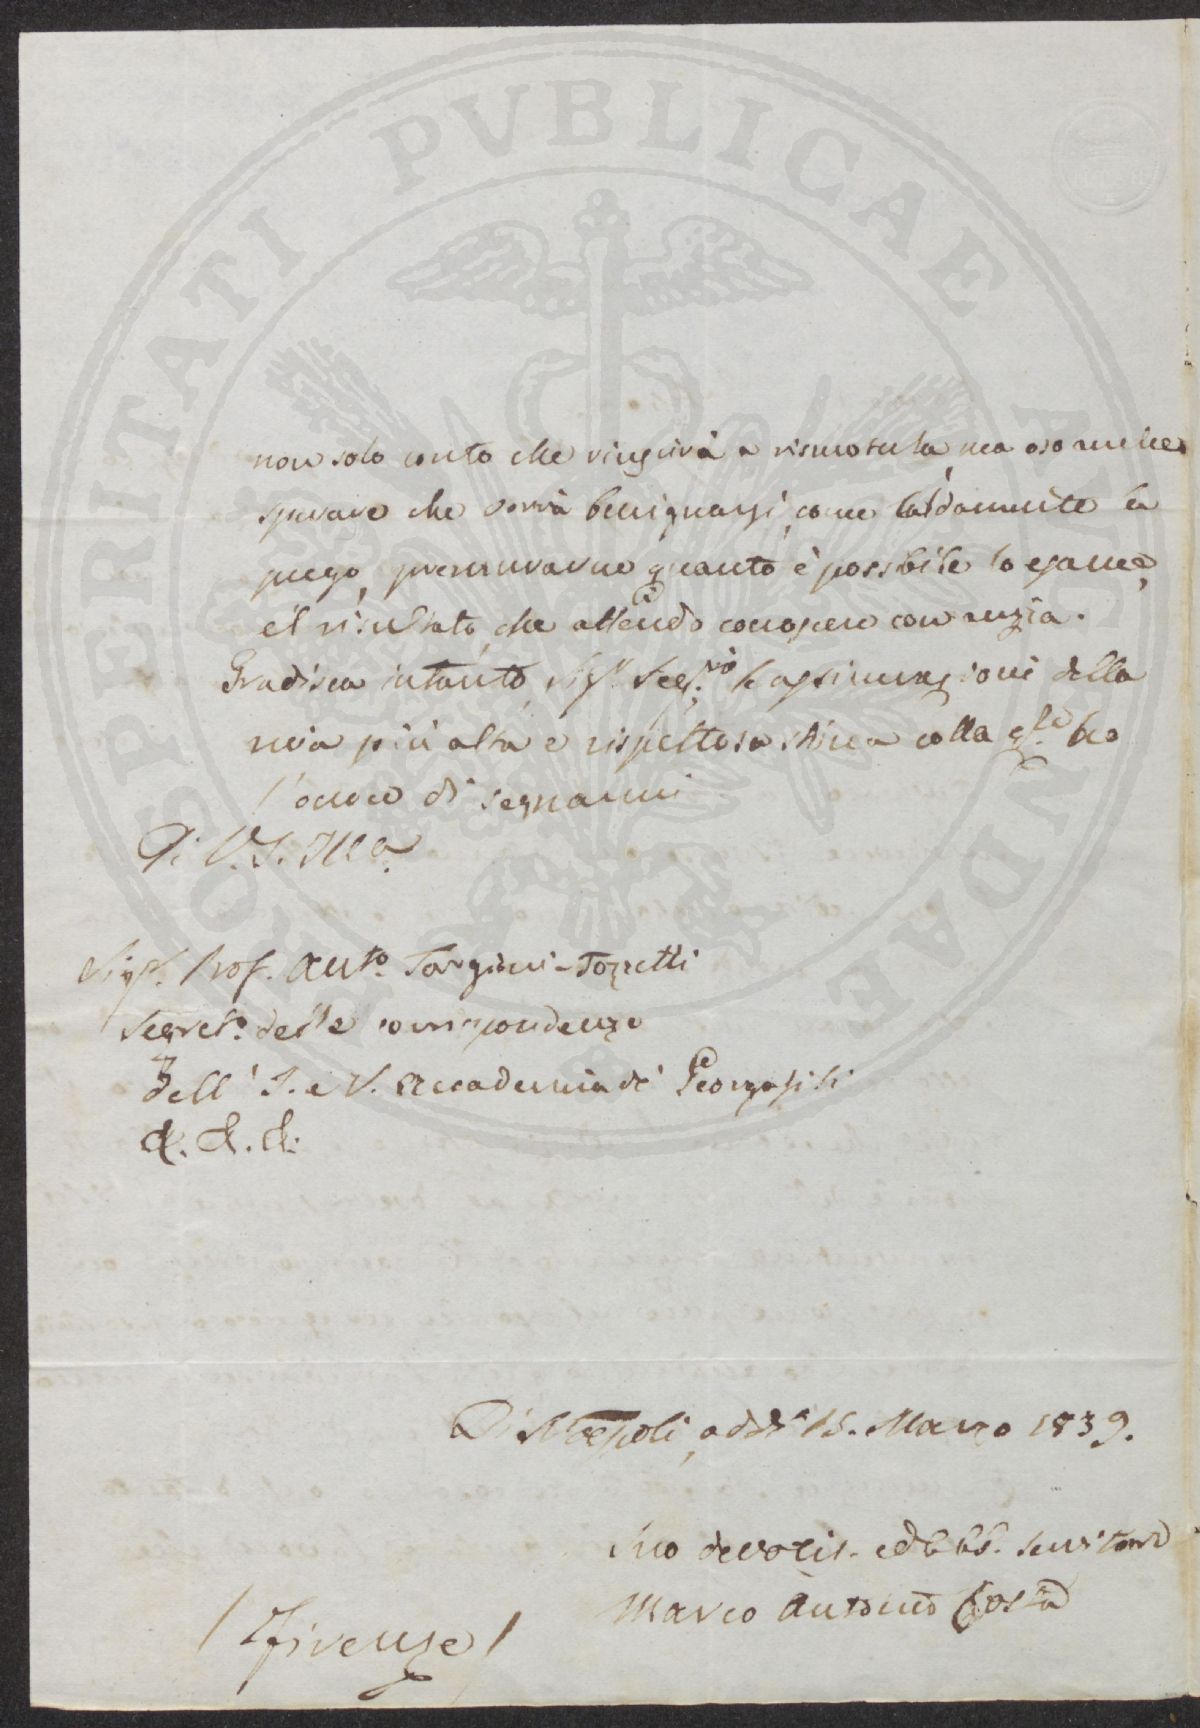 PROSPERITATI PVBLICAE AVGENDAE
non solo conto che riuscirà a rismosterla, ma oso anche
sperare che vorrà benignarsi, come caldamente la
prego, premurarne quanto è possibile lo esame,
e 'l risultato, che attendo conoscere con anzia.
Gradisca intanto, Sigr. Segr.rio le assicurazioni della
mia più alta e rispettosa stima colla qle. ho
l'onore di segnarmi
Di V. S. Illa.
Sigr. Prof. Anto. Targioni-Tozzetti
Segreto. delle corrispondenze
dell' I. e R. Accademia de' Georgofili
&. &. &.
Di Napoli, addì 15. Marzo 1839.
Suo devotis. ed obb. servitore
Marco Antonio Costa
/ Firenze /